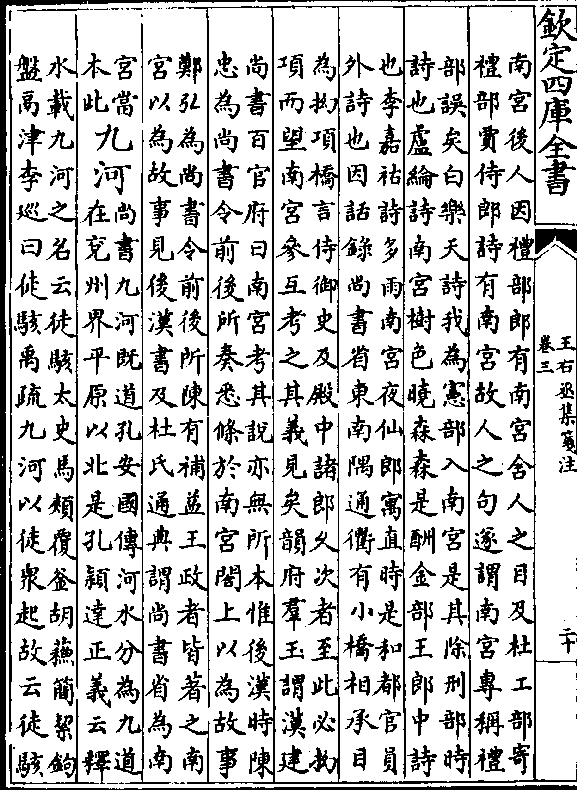 欽定四庫全書
王右丞集箋注
卷三
二十
南宮後人因禮部郎有南宮舍人之目及杜工部寄
禮部賈侍郎詩有南宮故人之句遂謂南宮專稱禮
部誤矣白樂天詩我為憲部入南宮是其除刑部時
詩也盧綸詩南宮樹色曉森森是酬金部王郎中詩
也李嘉祐詩多雨南宮夜仙郎寓直時是和都官員
外詩也因話錄尚書省東南隅通衢有小橋相承目
為拗項橋言侍御史及殿中諸郎久次者至此必拗
項而望南宮參互考之其義見矣韻府羣玉謂漢建
尚書百官府曰南宮考其說亦無所本惟後漢時陳
忠為尚書令前後所奏悉條於南宮閣上以為故事
鄭弘為尚書令前後所陳有補益王政者皆著之南
宮以為故事見後漢書及杜氏通典謂尚書省為南
宮當
本此
九河
尚書九河既道孔安國傳河水分為九道
在兗州界平原以北是孔穎達正義云釋
水載九河之名云徒駭太史馬頰覆釜胡蘇簡絜鉤
盤鬲津李巡曰徒駭禹疏九河以徒衆起故云徒駭